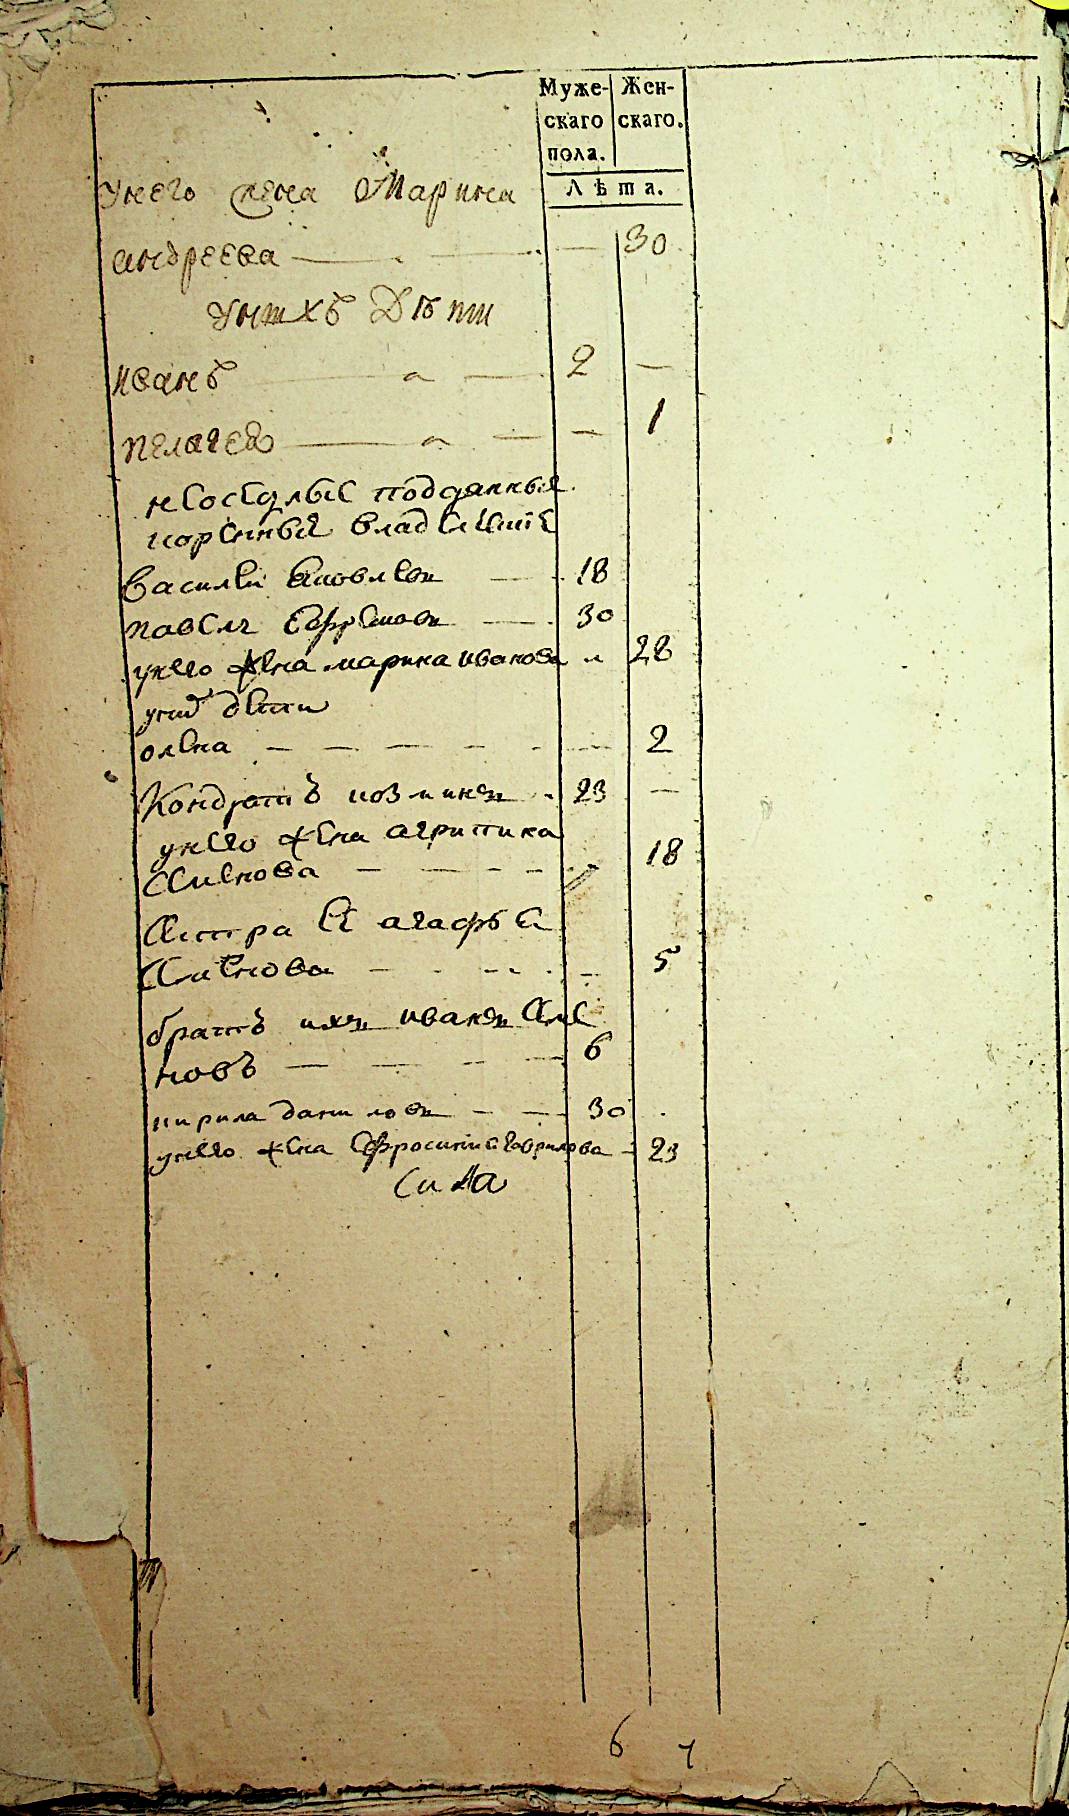 Муже- Жен-
скаго скаго.
пола.
Лѣта.
унего жена Марина
андреева — — 30
унихъ Дѣти
иванъ — 2 —
пелагея — — 1
неоседлые подданныя
василей яковлевъ — 18
павелъ Ефремовъ — 30
унего жена марина иванова 28
униxъ дети
олена — — 2
Кондратъ козминъ 23 —
унего жена агрипина
семенова — — 18
сестра Ея агафья
семенова — — 5
братъ ихъ иванъ семе
новъ — — 6
кирила даниловъ — — 30
унего жена Ефросиния гаврилова — 23
6 7